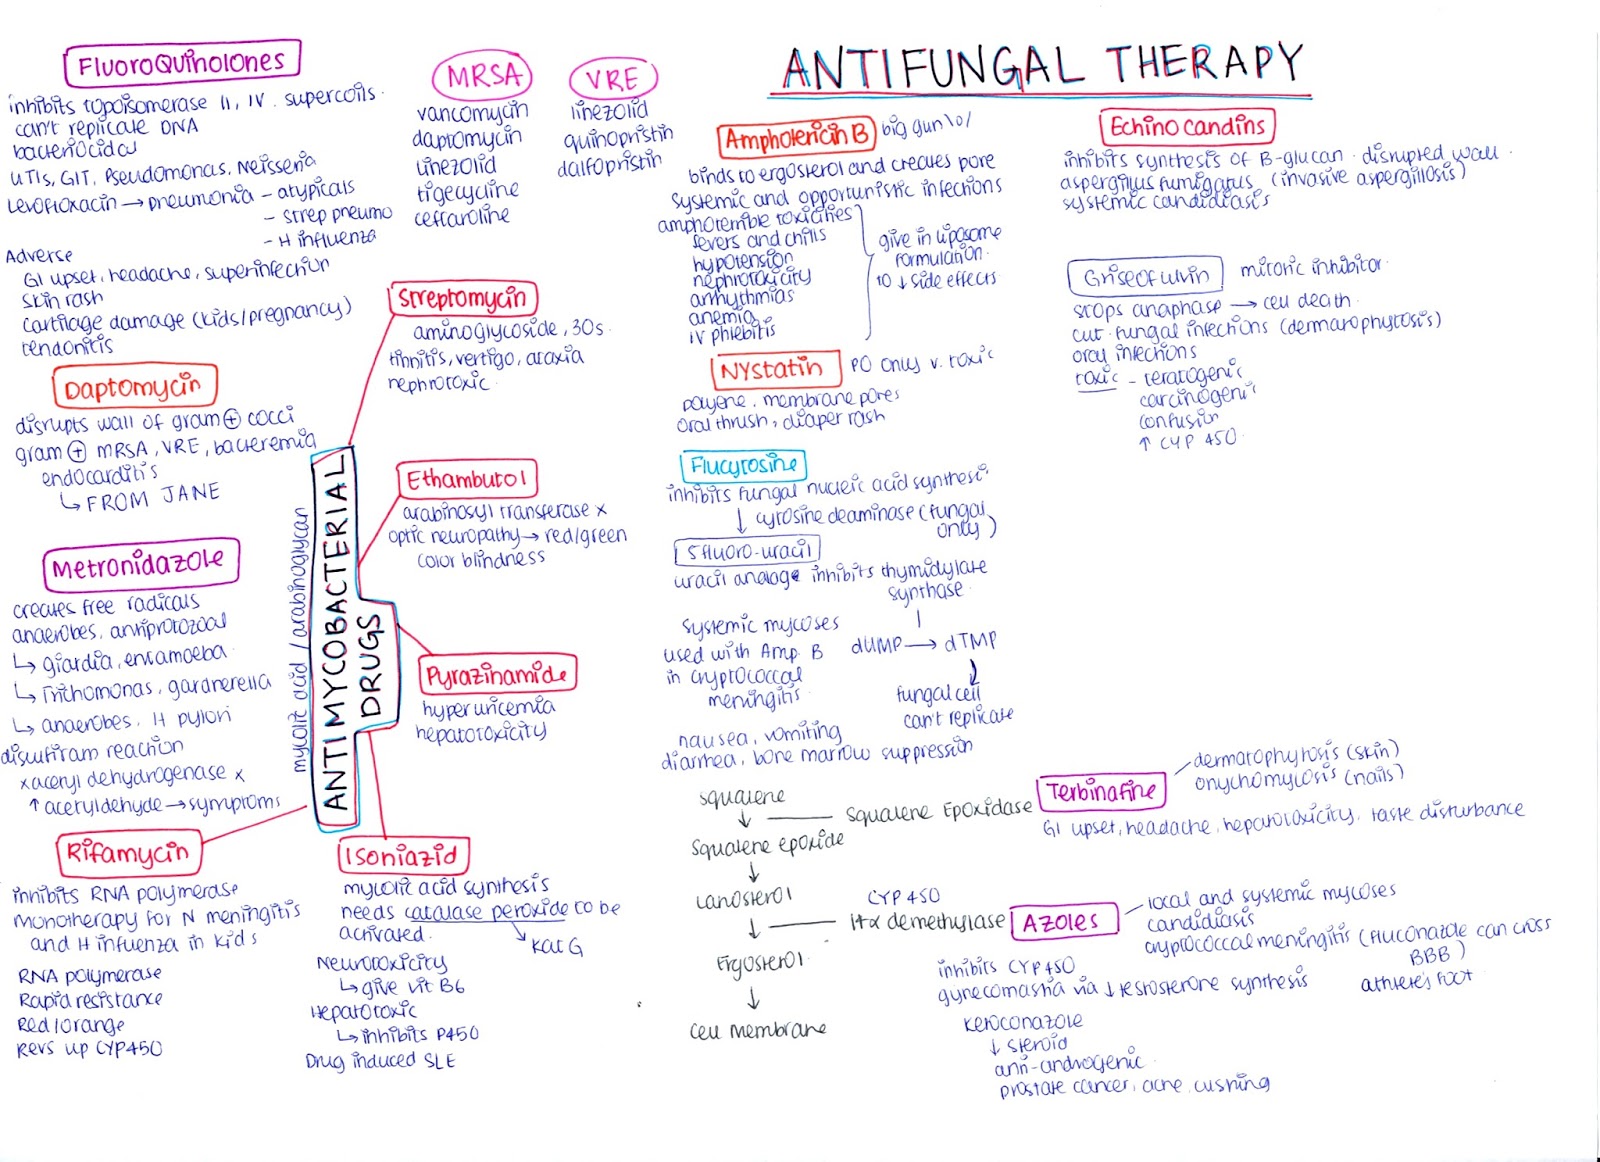 FluoroQuinolones
inhibits topoisomerase II, IV. supercoils.
can't replicate DNA
bacteriocidal
UTIs, GIT, Pseudomonas, Neisseria
Levofloxacin → pneumonia - atypicals
- Strep pneumo
- H influenza
Adverse
GI upset, headache, superinfection
skin rash
cartilage damage (kids/pregnancy)
tendonitis
Daptomycin
disrupts wall of gram ⊕ cocci
gram ⊕ MRSA, VRE, bacteremia
endocarditis
↳ FROM JANE
Metronidazole
creates free radicals
anaerobes, antiprotozoal
↳ giardia, entamoeba
↳ Trichomonas, gardnerella
↳ anaerobes, H pylori
disulfiram reaction
x acetyl dehydrogenase x
↑ acetyldehyde → symptoms
Rifamycin
inhibits RNA polymerase
monotherapy for N meningitis
and H infuenza in kids
RNA polymerase
Rapid resistance
Red/orange
Revs up CYP450
MRSA
vancomycin
daptomycin
linezolid
tigecycline
ceftaroline
VRE
linezolid
quinopristin
dalfopristin
Streptomycin
aminoglycoside, 30s.
tinnitis, vertigo, ataxia
nephrotoxic.
Ethambutol
arabinosyl transferase x
optic neuropathy → red/green
color blindness
mycolic acid / arabinoglycan
ANTIMYCOBACTERIAL
DRUGS
Pyrazinamide
hyperuricemia
hepatotoxicity
Isoniazid
mycolic acid synthesis
needs catalase peroxide to be
activated.
Kat G
Neurotoxicity
↳ give vit B6
Hepatotoxic
↳ inhibits P450
Drug induced SLE
ANTIFUNGAL THERAPY
Amphotericin B big gun \o/
binds to ergosterol and creates pore
systemic and opportunistic infections
amphoterrible toxicities
fevers and chills
hypotension
nephrotoxicity
arrhythmias
anemia
IV phlebitis
give in liposome
formulation.
to ↓ side effects
Nystatin PO only v. toxic
polyene, membrane pores
oral thrush, diaper rash
Flucytosine
inhibits fungal nucleic acid synthesi
↓ cytosine deaminase (fungal
only)
5 fluoro-uracil
uracil analoge inhibits thymidylate
synthase.
dUMP → dTMP
↓
fungal cell
can't replicate
systemic mycoses
used with Amp. B
in cryptococcal
meningitis
nausea, vomiting
diarrhea, bone marrow suppression
Squalene
↓ Squalene Epoxidase
Squalene epoxide
↓
Lanosterol
↓ CYP 450
14α demethylase
Ergosterol
↓
cell membrane
Echinocandins
inhibits synthesis of B-glucan. disrupted wall.
aspergillus fumigatus (invasive aspergillosis)
systemic candidiasis
Griseofulvin mitotic inhibitor.
stops anaphase → cell death.
cut. fungal infections (dermatophytosis)
oral infections
toxic - teratogenic
carcinogenic
confusion
↑ CYP 450.
Terbinafine
dermatophytosis (skin)
onychomycosis (nails)
GI upset, headache, hepatotoxicity, taste disturbance
Azoles
local and systemic mycoses
candidiasis
cryptococcal meningitis (fluconazole can cross
BBB)
athlete's foot
inhibits CYP450
gynecomastia via ↓ testosterone synthesis
Ketoconazole
↓ steroid
anti-androgenic
prostate cancer, acne, cushing